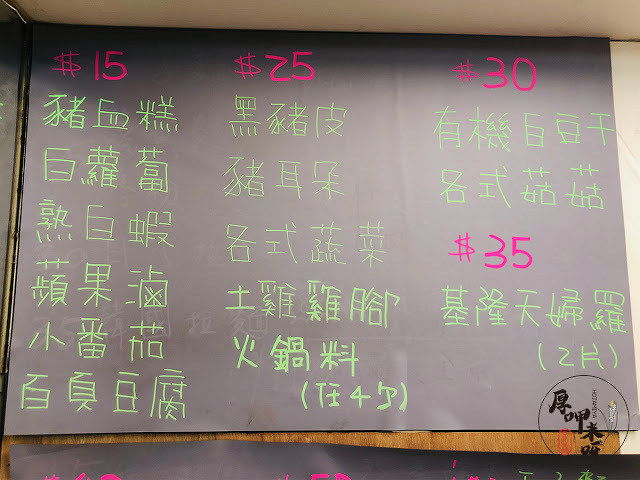 $15
豬血糕
白蘿蔔
熟白蝦
蘋果滷
小番茄
百頁豆腐
$25
黑豬皮
豬耳朵
各式蔬菜
土雞雞腳
火鍋料
(任4勺)
$30
有機白豆干
各式菇菇
$35
基隆天婦羅
(2片)